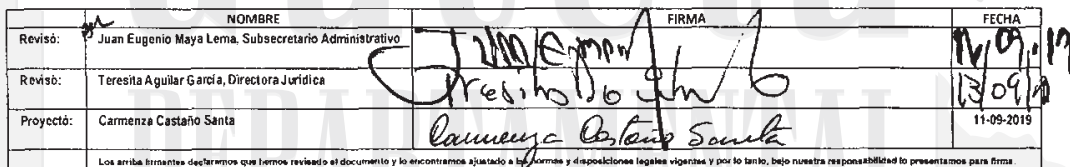 NOMBRE FIRMA FECHA
Revisó: Juan Eugenio Maya Lema, Subsecretario Administrativo
Revisó: Teresita Aguilar García, Directora Jurídica 13/09/
Proyectó: Carmenza Castaño Santa Carmenza Castaño Santa 11-09-2019
Los arriba firmantes declaramos que hemos revisado el documento y lo encontramos ajustado a las normas y disposiciones legales vigentes y por lo tanto, bajo nuestra responsabilidad lo presentamos para firma